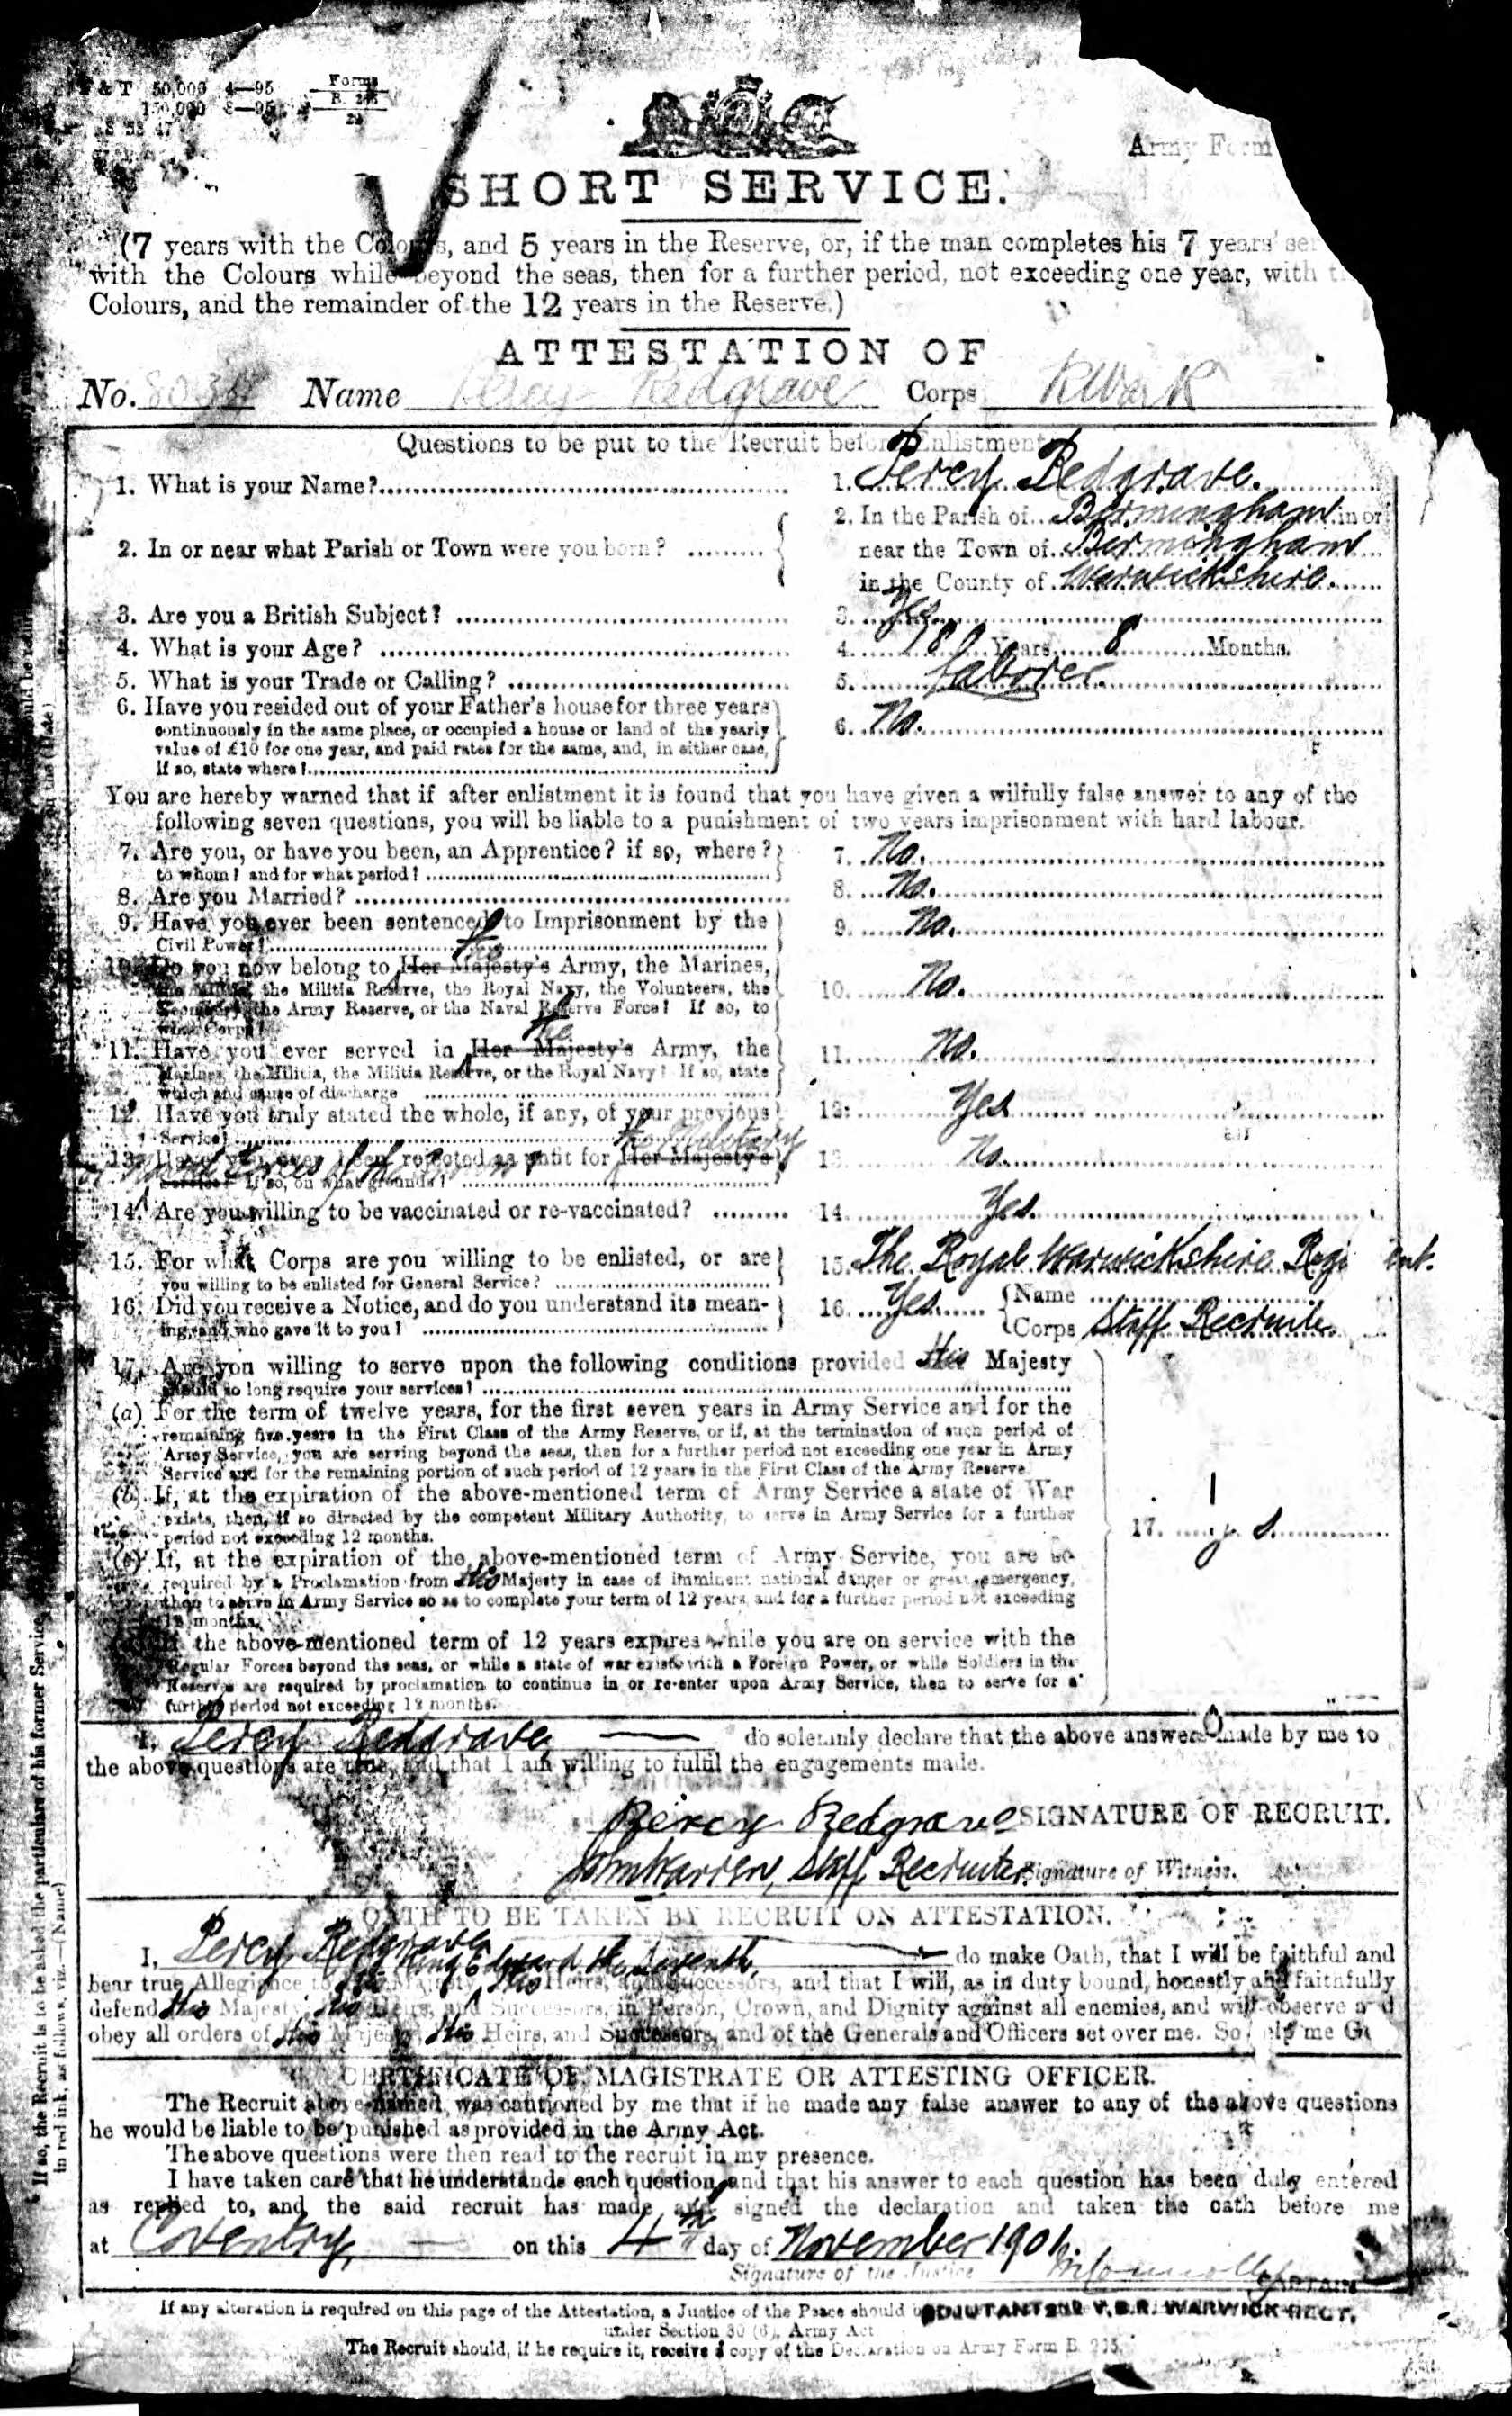 & T 50,000 4—95
150,000 8—95
Forms
B. 265
Army Form
SHORT SERVICE.
(7 years with the Colours, and 5 years in the Reserve, or, if the man completes his 7 years' ser
with the Colours while beyond the seas, then for a further period, not exceeding one year, with
Colours, and the remainder of the 12 years in the Reserve.)
ATTESTATION OF
No. Name Percy Redgrave Corps R War R
Questions to be put to the Recruit before Enlistment
1. What is your Name? 1. Percy Redgrave.
2. In the Parish of Birmingham in or
2. In or near what Parish or Town were you born? near the Town of Birmingham
in the County of Warwickshire.
3. Are you a British Subject? 3. Yes.
4. What is your Age? 4. 18 Years 8 Months.
5. What is your Trade or Calling? 5. Laborer
6. Have you resided out of your Father's house for three years
continuously in the same place, or occupied a house or land of the yearly 6. No.
value of £10 for one year, and paid rates for the same, and, in either case,
if so, state where?
You are hereby warned that if after enlistment it is found that you have given a wilfully false answer to any of the
following seven questions, you will be liable to a punishment of two years imprisonment with hard labour.
7. Are you, or have you been, an Apprentice? if so, where? 7. No.
to whom? and for what period?
8. Are you Married? 8. No.
9. Have you ever been sentenced to Imprisonment by the 9. No.
Civil Power?
the
10. Do you now belong to Her Majesty's Army, the Marines,
the Militia, the Militia Reserve, the Royal Navy, the Volunteers, the 10. No.
Yeomanry, the Army Reserve, or the Naval Reserve Force? If so, to
what Corps?
the
11. Have you ever served in Her Majesty's Army, the 11. No.
Marines, the Militia, the Militia Reserve, or the Royal Navy? If so, state
which and cause of discharge
12. Have you truly stated the whole, if any, of your previous 12. Yes
Service?
the Military
13. Have you ever been rejected as unfit for Her Majesty's 13. No.
Service? If so, on what grounds?
14. Are you willing to be vaccinated or re-vaccinated? 14. Yes.
15. For what Corps are you willing to be enlisted, or are 15. The Royal Warwickshire Regi ent.
you willing to be enlisted for General Service?
16. Did you receive a Notice, and do you understand its mean- 16. Yes. Name
ing, and who gave it to you? Corps Staff Recruiter
17. Are you willing to serve upon the following conditions provided His Majesty
should so long require your services?
(a) For the term of twelve years, for the first seven years in Army Service and for the
remaining five years in the First Class of the Army Reserve, or if, at the termination of such period of
Army Service, you are serving beyond the seas, then for a further period not exceeding one year in Army
Service and for the remaining portion of such period of 12 years in the First Class of the Army Reserve
(b) If, at the expiration of the above-mentioned term of Army Service a state of War
exists, then, if so directed by the competent Military Authority, to serve in Army Service for a further
period not exceeding 12 months. 17.
(c) If, at the expiration of the above-mentioned term of Army Service, you are so
required by a Proclamation from His Majesty in case of imminent national danger or great emergency,
then to serve in Army Service so as to complete your term of 12 years, and for a further period not exceeding
12 months.
the above-mentioned term of 12 years expires while you are on service with the
Regular Forces beyond the seas, or while a state of war exists with a Foreign Power, or while Soldiers in the
Reserve are required by proclamation to continue in or re-enter upon Army Service, then to serve for a
further period not exceeding 12 months.
I, Percy Redgrave do solemnly declare that the above answers made by me to
the above questions are true, and that I am willing to fulfil the engagements made.
Percy Redgrave SIGNATURE OF RECRUIT.
John Warren, Staff Recruiter Signature of Witness.
OATH TO BE TAKEN BY RECRUIT ON ATTESTATION.
I, Percy Redgrave do make Oath, that I will be faithful and
King Edward the Seventh,
bear true Allegiance to His Majesty, His Heirs, and Successors, and that I will, as in duty bound, honestly and faithfully
defend His Majesty, His Heirs, and Successors, in Person, Crown, and Dignity against all enemies, and will observe and
obey all orders of His Majesty, His Heirs, and Successors, and of the Generals and Officers set over me. So help me G
CERTIFICATE OF MAGISTRATE OR ATTESTING OFFICER.
The Recruit above-named was cautioned by me that if he made any false answer to any of the above questions
he would be liable to be punished as provided in the Army Act.
The above questions were then read to the recruit in my presence.
I have taken care that he understands each question, and that his answer to each question has been duly entered
as replied to, and the said recruit has made and signed the declaration and taken the oath before me
at Coventry, on this 4th day of November 1901.
Signature of the Justice
CAPTAIN
If any alteration is required on this page of the Attestation, a Justice of the Peace should
ADJUTANT 2ND V.B.R. WARWICK REGT.
under Section 80 (6), Army Act
The Recruit should, if he require it, receive a copy of the Declaration on Army Form B. 265.
If so, the Recruit is to be asked the particulars of his former Service
in red ink, as follows, viz.—(Name)